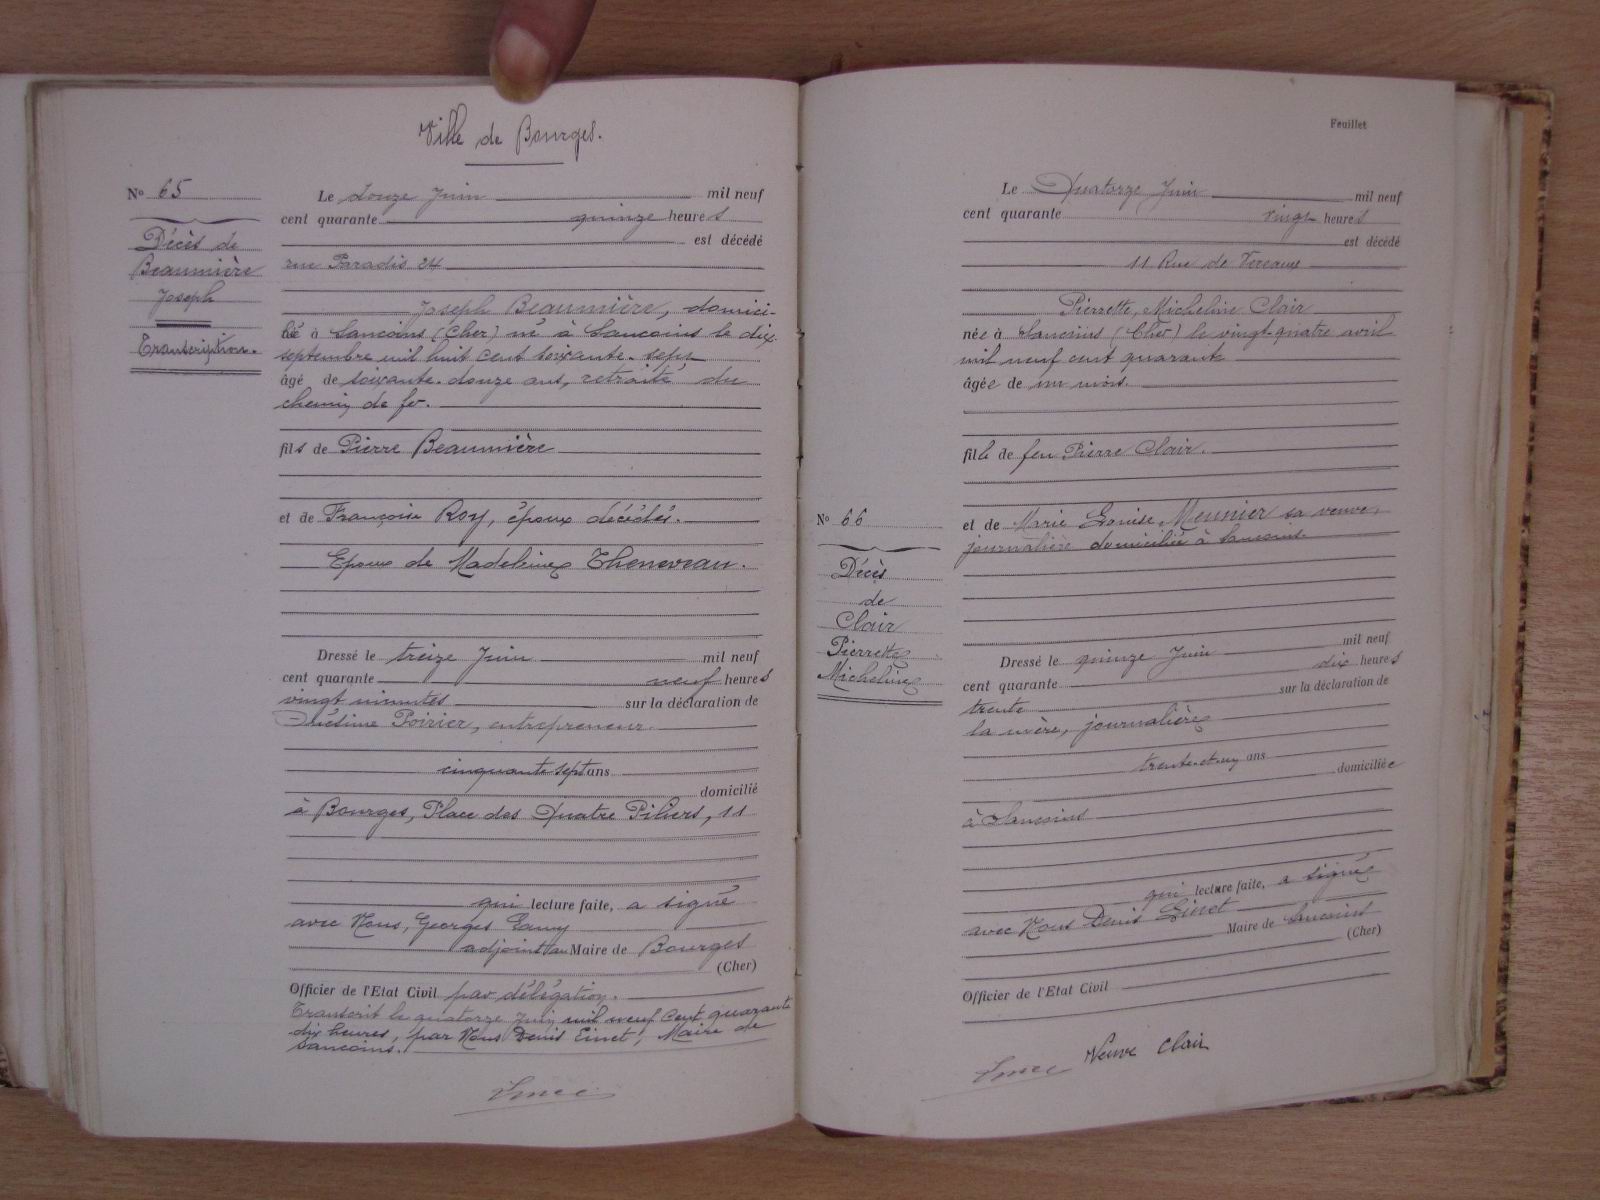 Ville de Bourges.
No 65
Décès de
Beaumière
Joseph
Transcription.
Le douze Juin mil neuf
cent quarante quinze heures
est décédé
rue Paradis 24
Joseph Beaumière, domici-
lié à Sancoins (Cher) né à Sancoins le dix
septembre mil huit cent soixante-sept
âgé de soixante-douze ans, retraité du
chemin de fer.
fils de Pierre Beaumière
et de Françoise Roy, époux décédés.
Epoux de Madeleine Theneveau.
Dressé le treize Juin mil neuf
cent quarante neuf heures
vingt minutes sur la déclaration de
Poirier, entrepreneur.
cinquante sept ans
domicilié
à Bourges, Place des Quatre Piliers, 11
qui lecture faite, a signé
avec Nous, Georges
adjoint au Maire de Bourges
(Cher)
Officier de l'Etat Civil par délégation.
Transcrit le quatorze Juin mil neuf cent quarante
dix heures, par Nous Denis Einet, Maire de
Sancoins.
Feuillet
Le Quatorze Juin mil neuf
cent quarante vingt heures
est décédé
11 Rue de
Pierrette, Micheline Clair
née à Sancoins (Cher) le vingt-quatre avril
mil neuf cent quarante
âgée de un mois.
fille de feu Pierre Clair.
No 66
Décès
de
Clair
Pierrette
Micheline
et de Marie Louise Meunier sa veuve,
journalière domiciliée à Sancoins.
Dressé le quinze Juin mil neuf
cent quarante dix heures
trente sur la déclaration de
la mère, journalière
trente-et-un ans
domiciliée
à Sancoins
qui lecture faite, a signé
avec Nous Denis Einet
Maire de Sancoins
(Cher)
Officier de l'Etat Civil
Veuve Clair